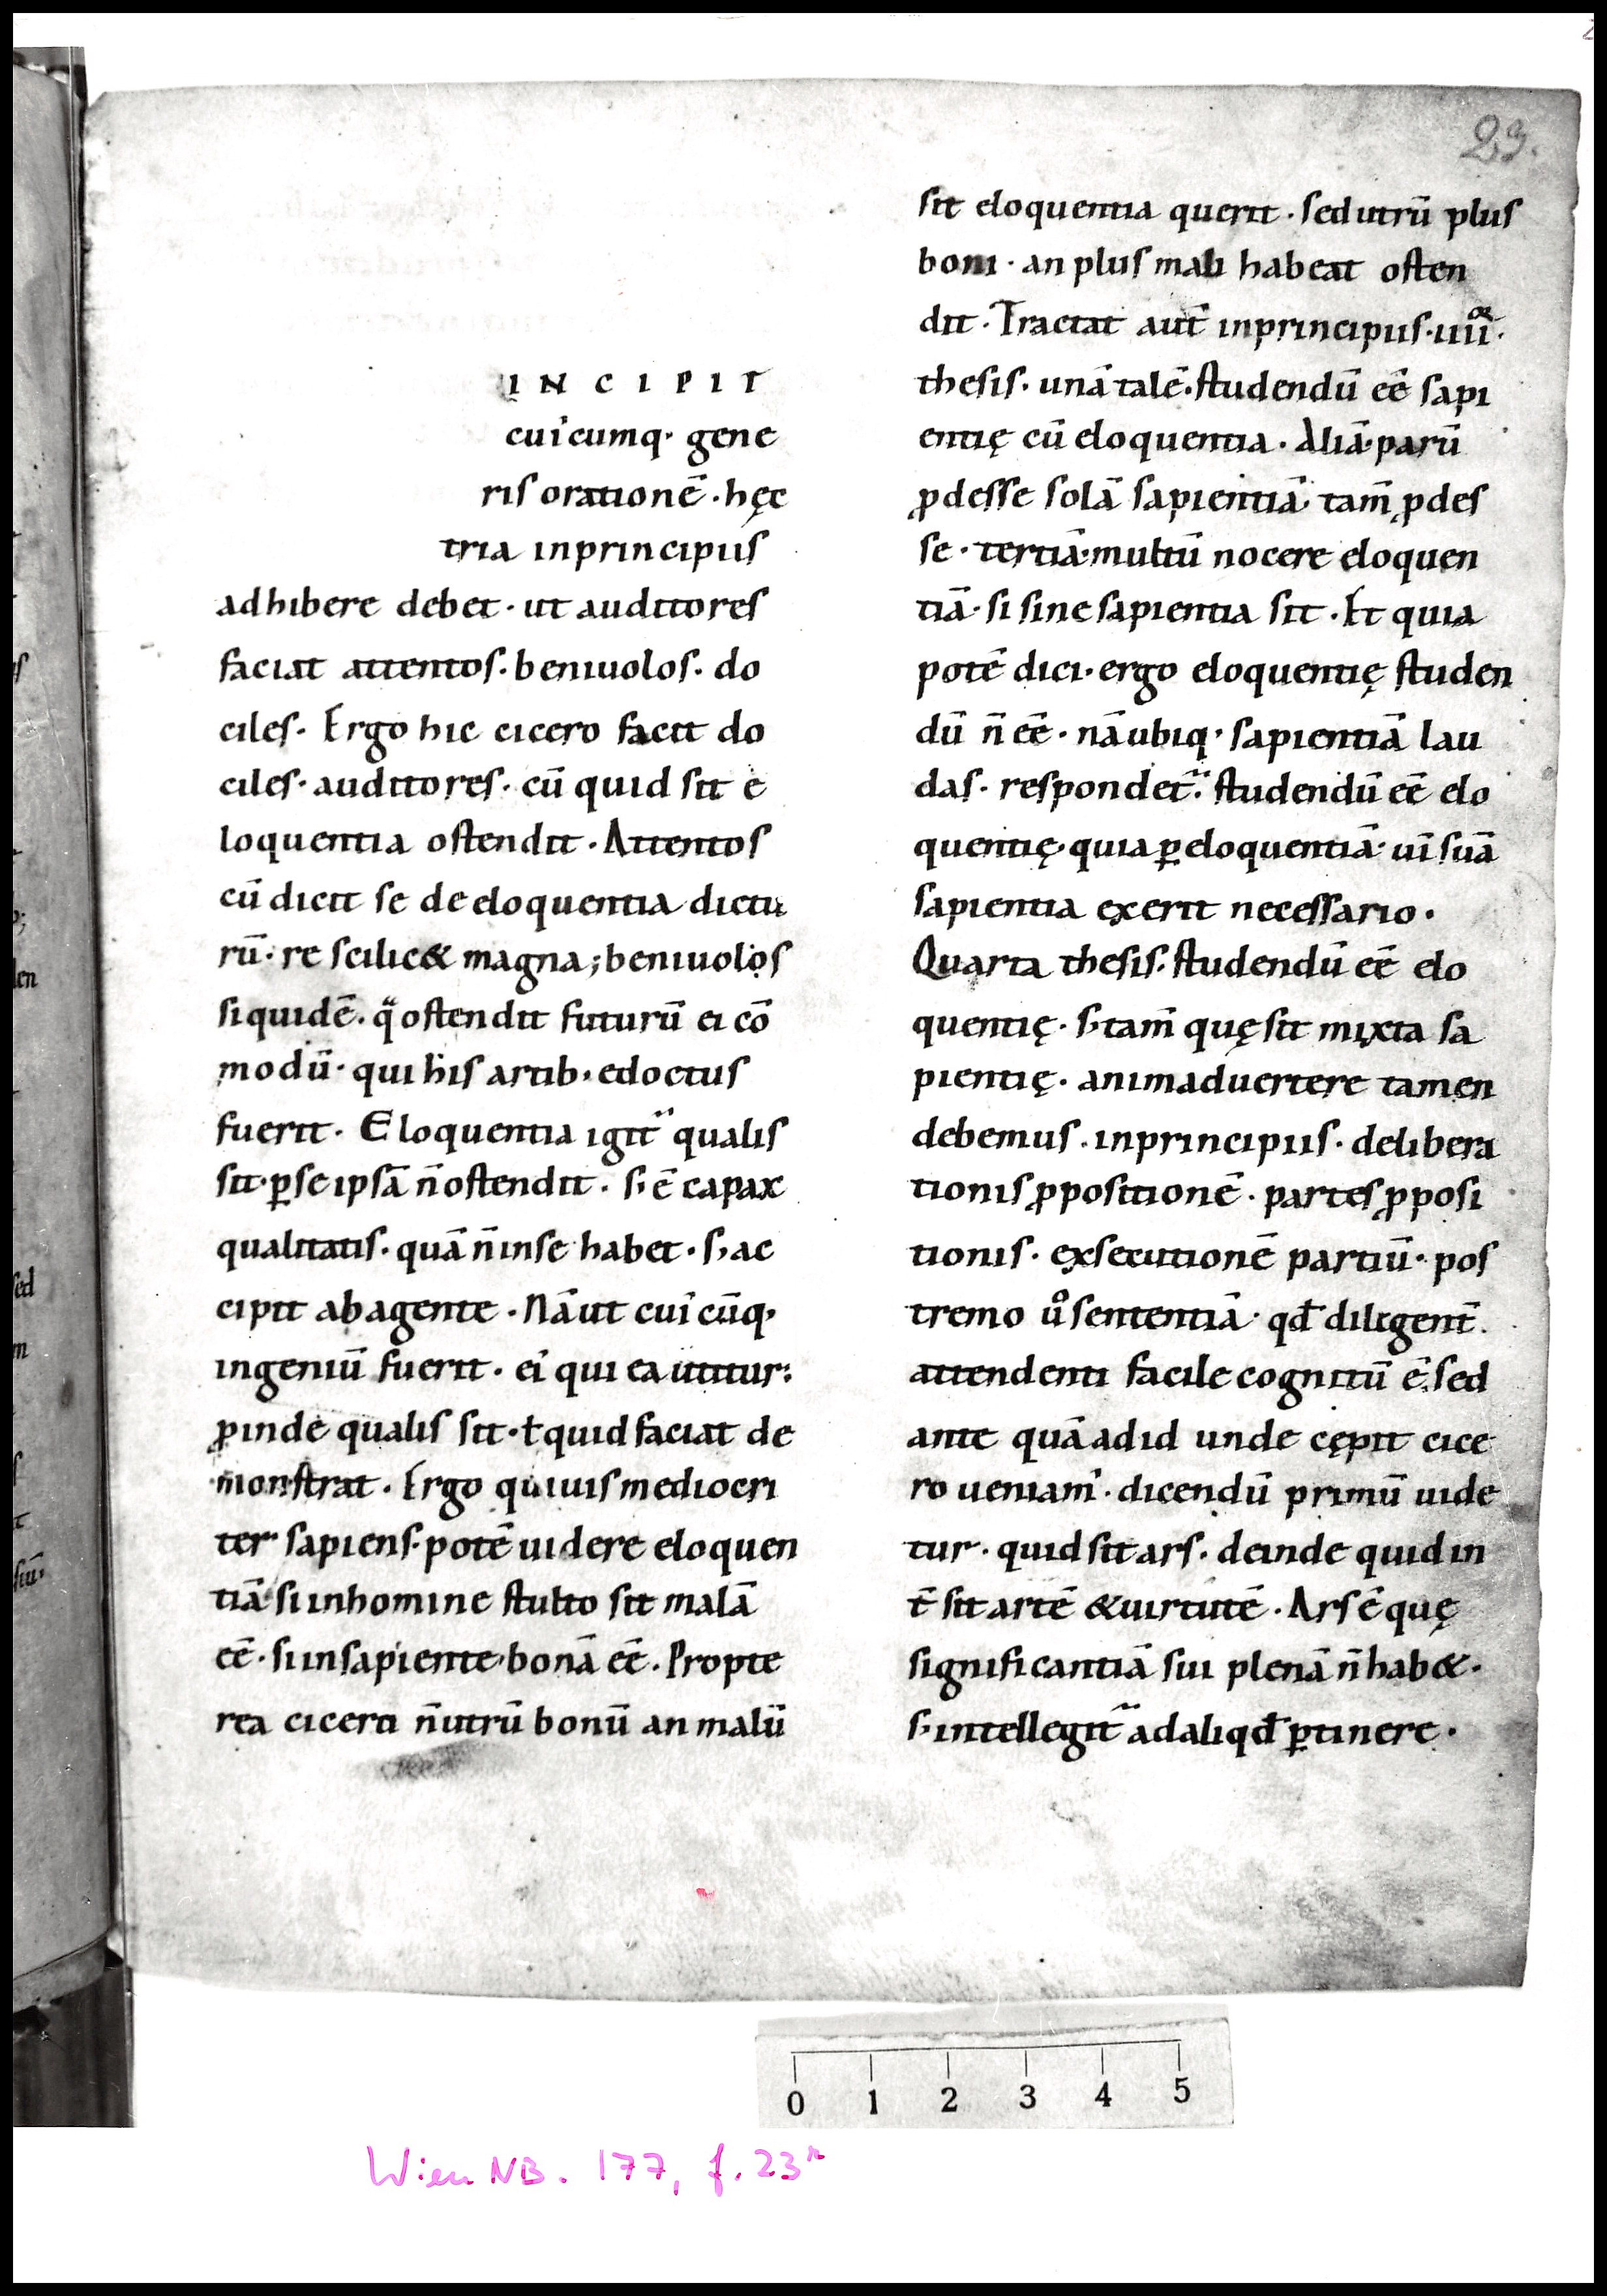 23.
INCIPIT
cuicumq· gene
ris orationē · hęc
tria inprincipiis
adhibere debet · ut auditores
faciat attentos · beniuolos · do
ciles · Ergo hic cicero facit do
ciles · auditores · cū quid sit e
loquentia ostendit · Attentos
cū dicit se de eloquentia dictu
rū · re scilic& magna; beniuolos
siquidē · q̈ ostendit futurū ei cō
modū · qui his artib· edoctus
fuerit · Eloquentia igit̄ qualis
sit · ꝑ se ipsā n̄ ostendit · s; ē capax
qualitatis · quā n̄ inse habet · s; ac
cipit abagente · Nā ut cuicūq·
ingeniū fuerit · ei qui ea utitur:
ꝓinde qualis sit · ł quid faciat de
monstrat · Ergo quiuis mediocri
ter sapiens · potē uidere eloquen
tiā · si inhomine stulto sit malā
eē · si insapiente · bonā eē · Propte
rea cicero n̄ utrū bonū an malū
sit eloquentia querit · sed utrū plus
boni · an plus mali habeat osten
dit · Tractat aut̄ inprincipiis · iiii ·
thesis · unā talē · studendū eē sapi
entię cū eloquentia · Aliā · parū
ꝓdesse solā sapientiā · tam̄ ꝓdes
se · tertiā · multū nocere eloquen
tiā · si sine sapientia sit · Et quia
potē dici · ergo eloquentię studen
dū n̄ eē · nā ubiq· sapientiā lau
das · respondet̄ · studendū eē elo
quentię · quia ꝑ eloquentiā · uī suā
sapientia exerit necessario ·
Quarta thesis · studendū eē elo
quentię · s; tam̄ quę sit mixta sa
pientię · animaduertere tamen
debemus · inprincipiis · delibera
tionis ꝓpositionē · partes ꝓposi
tionis · exsecutionē partiū · pos
tremo uͦ sententiā · qđ diligent̄
attendenti facile cognitū ē · sed
ante quā adid unde cępit cice
ro ueniam̄ · dicendū primū uide
tur · quid sit ars · deinde quid in
t̄ sit artē & uirtutē · Ars ē quę
significantiā sui plenā n̄ hab& ·
s; intellegit̄ adaliqđ ꝑtinere ·
0 1 2 3 4 5
Wien NB. 177, f. 23r